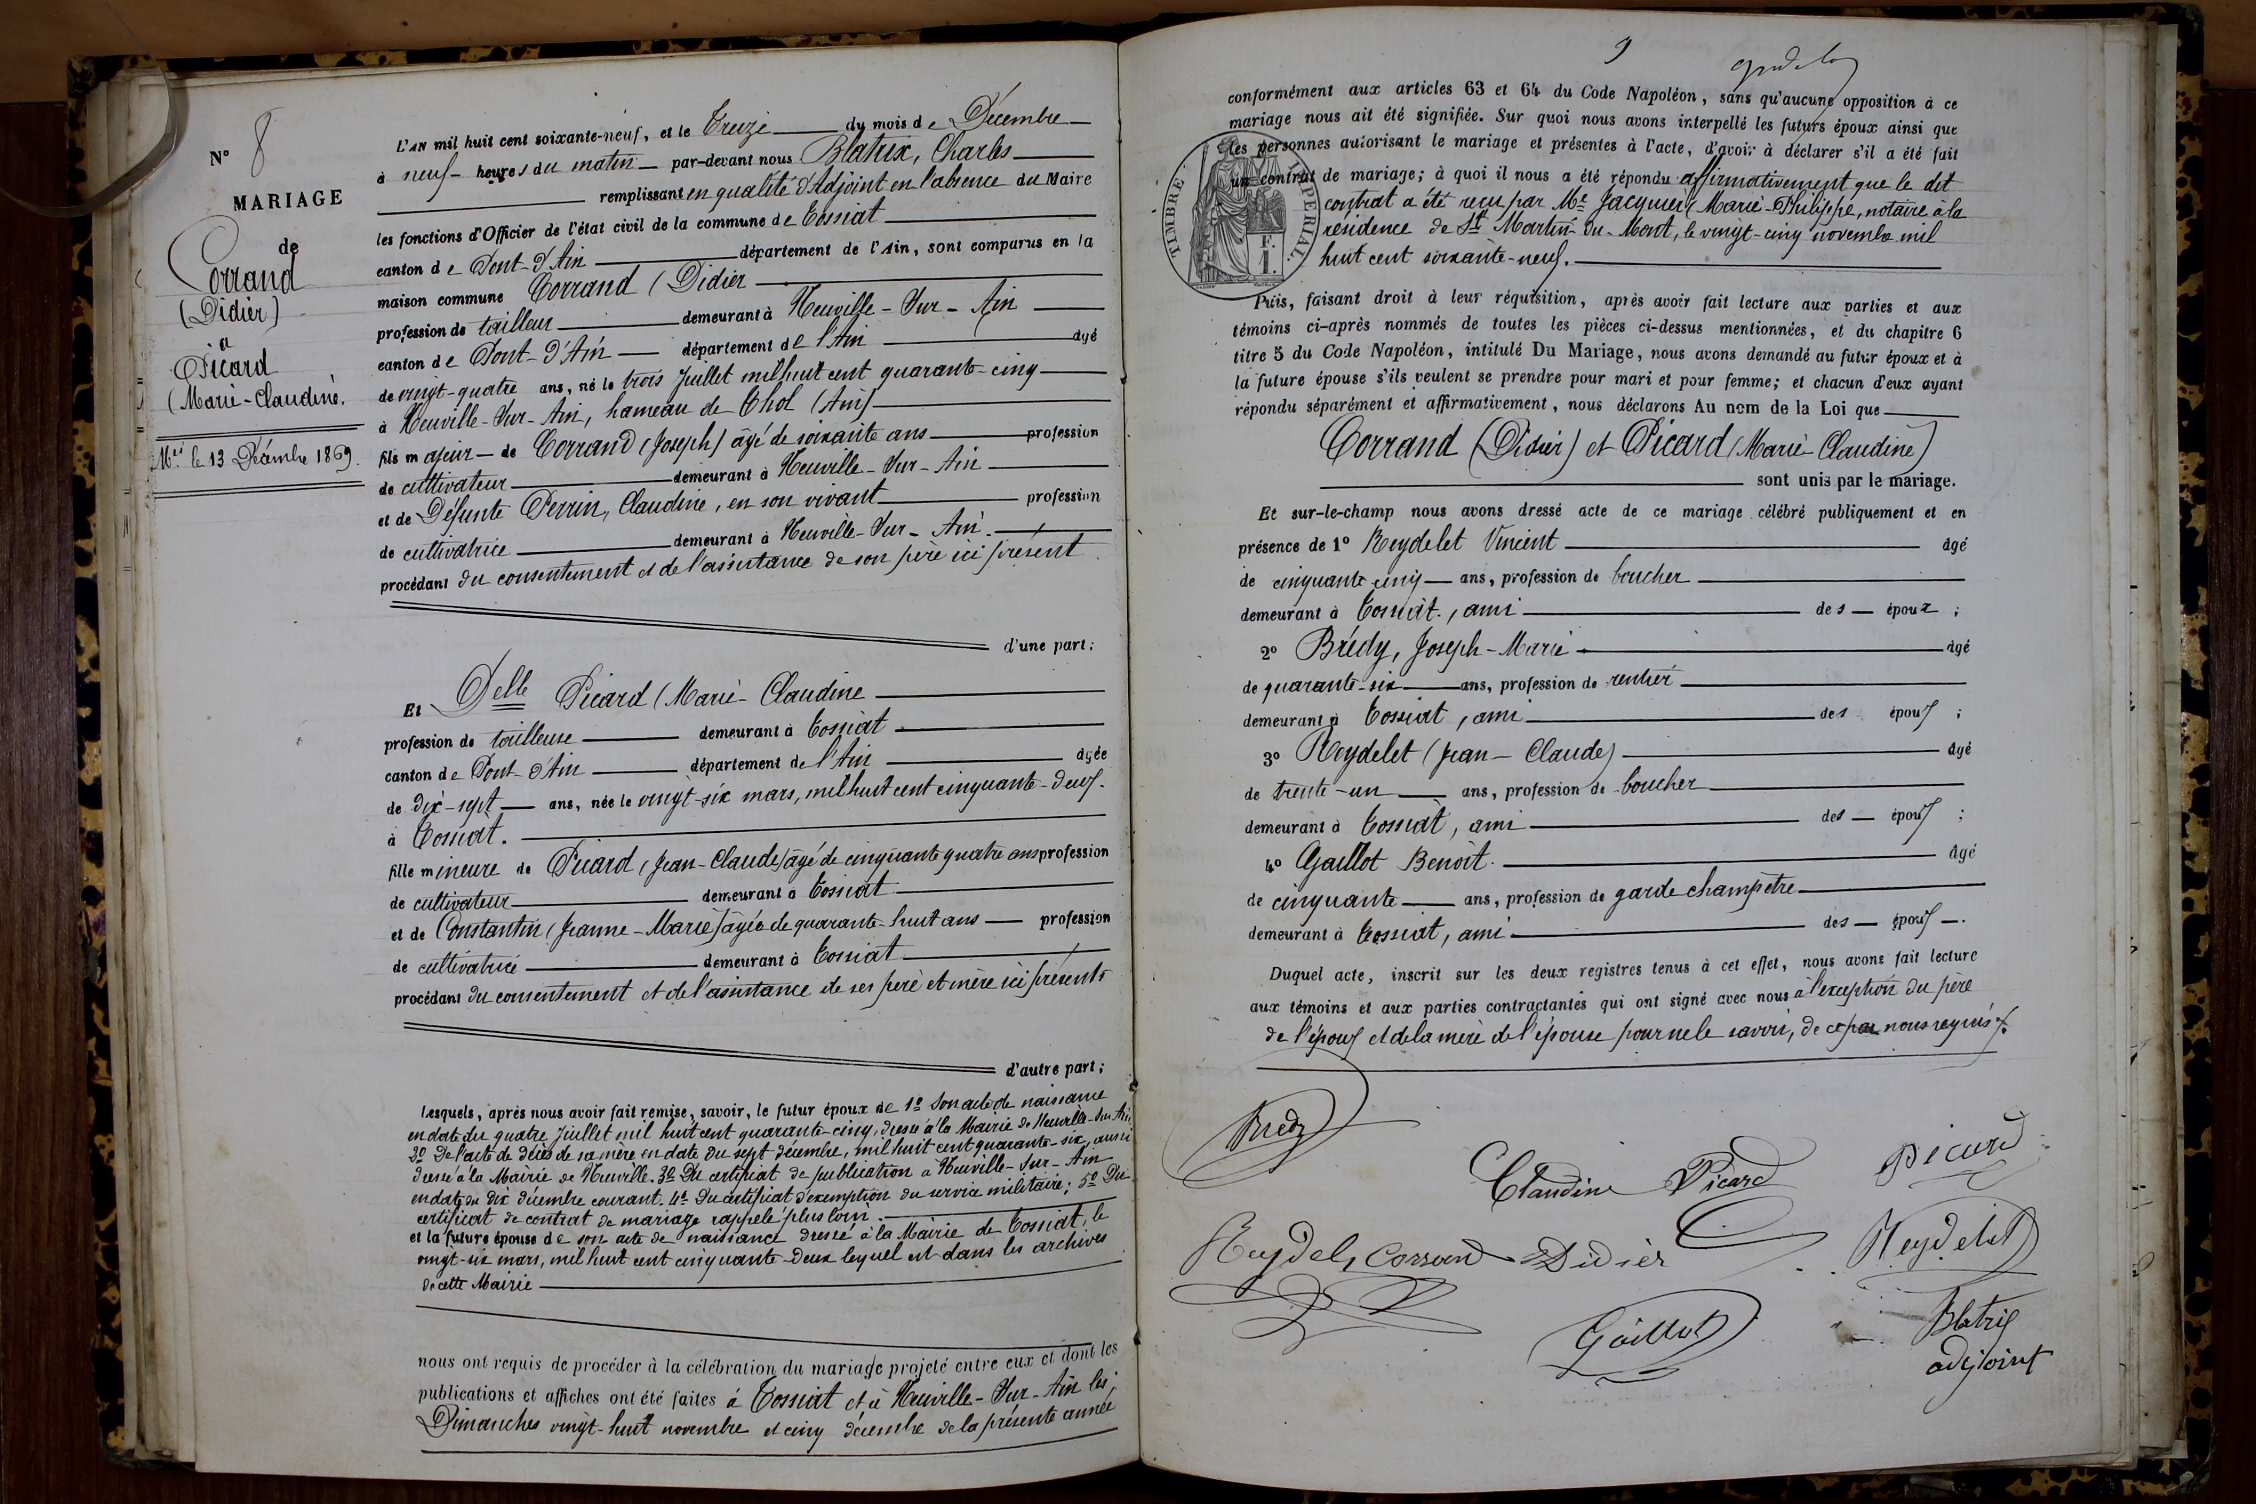 N° 8
MARIAGE
de
Corrand
(Didier)
a
Picard
(Marie-Claudine.
M.és le 13 Décembre 1869.
L'AN mil huit cent soixante-neuf, et le Treize du mois de Décembre
à neuf heures du matin par-devant nous Blatrix, Charles
remplissant en qualité d'Adjoint en l'absence du Maire
les fonctions d'Officier de l'état civil de la commune de Tossiat
canton de Pont-d'Ain département de l'Ain, sont comparus en la
maison commune Corrand (Didier
profession de tailleur demeurant à Neuville-Sur-Ain
canton de Pont-d'Ain département de l'Ain âgé
de vingt-quatre ans, né le trois Juillet mil huit cent quarante-cinq
à Neuville-Sur-Ain, hameau de Thol (Ain)
fils majeur de Corrand (Joseph) âgé de soixante ans profession
de cultivateur demeurant à Neuville-Sur-Ain
et de Défunte Perrin, Claudine, en son vivant profession
de cultivatrice demeurant à Neuville-Sur-Ain.
procédant du consentement et de l'assistance de son père ici présent
d'une part;
Et Delle Picard (Marie-Claudine
profession de tailleuse demeurant à Tossiat
canton de Pont-d'Ain département de l'Ain âgée
de dix-sept ans, née le vingt-six mars, mil huit cent cinquante-deux.
à Tossiat.
fille mineure de Picard (Jean-Claude) âgé de cinquante quatre ans profession
de cultivateur demeurant à Tossiat
et de Constantin (Jeanne-Marie) âgée de quarante-huit ans profession
de cultivatrice demeurant à Tossiat
procédant du consentement et de l'assistance de ses père et mère ici présents
d'autre part;
Lesquels, après nous avoir fait remise, savoir, le futur époux de 1° Son acte de naissance
en date du quatre Juillet mil huit cent quarante-cinq, dressé à la Mairie de Neuville-Sur-Ain
2° De l'acte de décès de sa mère en date du sept décembre, mil huit cent quarante-six, aussi
dressé à la Mairie de Neuville. 3° Du certificat de publication à Neuville-Sur-Ain
en date du dix décembre courant. 4° Du certificat d'exemption du service militaire; 5° Du
certificat de contrat de mariage rappelé plus loin.
et la future épouse de son acte de naissance dressé à la Mairie de Tossiat, le
vingt-six mars, mil huit cent cinquante-deux lequel est dans les archives
de cette Mairie
nous ont requis de procéder à la célébration du mariage projeté entre eux et dont les
publications et affiches ont été faites à Tossiat et à Neuville-Sur-Ain les
Dimanches vingt-huit novembre et cinq décembre de la présente année
9
conformément aux articles 63 et 64 du Code Napoléon, sans qu'aucune opposition à ce
mariage nous ait été signifiée. Sur quoi nous avons interpellé les futurs époux ainsi que
les personnes autorisant le mariage et présentes à l'acte, d'avoir à déclarer s'il a été fait
un contrat de mariage; à quoi il nous a été répondu affirmativement que le dit
contrat a été reçu par Me Jacquier (Marie-Philippe, notaire à la
résidence de St Martin-du-Mont, le vingt-cinq novembre mil
huit cent soixante-neuf.
TIMBRE IMPERIAL
F.
1.
Puis, faisant droit à leur réquisition, après avoir fait lecture aux parties et aux
témoins ci-après nommés de toutes les pièces ci-dessus mentionnées, et du chapitre 6
titre 5 du Code Napoléon, intitulé Du Mariage, nous avons demandé au futur époux et à
la future épouse s'ils veulent se prendre pour mari et pour femme; et chacun d'eux ayant
répondu séparément et affirmativement, nous déclarons Au nom de la Loi que
Corrand (Didier) et Picard (Marie-Claudine)
sont unis par le mariage.
Et sur-le-champ nous avons dressé acte de ce mariage célébré publiquement et en
présence de 1° Reydelet Vincent âgé
de cinquante cinq ans, profession de boucher
demeurant à Tossiat, ami des époux;
2° Brédy, Joseph-Marie âgé
de quarante-six ans, profession de rentier
demeurant à Tossiat, ami des époux;
3° Reydelet (Jean-Claude) âgé
de trente-un ans, profession de boucher
demeurant à Tossiat, ami des époux;
4° Gaillot Benoît. âgé
de cinquante ans, profession de garde champêtre
demeurant à Tossiat, ami des époux.
Duquel acte, inscrit sur les deux registres tenus à cet effet, nous avons fait lecture
aux témoins et aux parties contractantes qui ont signé avec nous à l'exception du père
de l'époux et de la mère de l'épouse pour ne le savoir, de ce par nous requis.
Brédy
Claudine Picard
Picard
Reydelet
Corrand Didier
Reydelet
Gaillot
Blatrix
adjoint